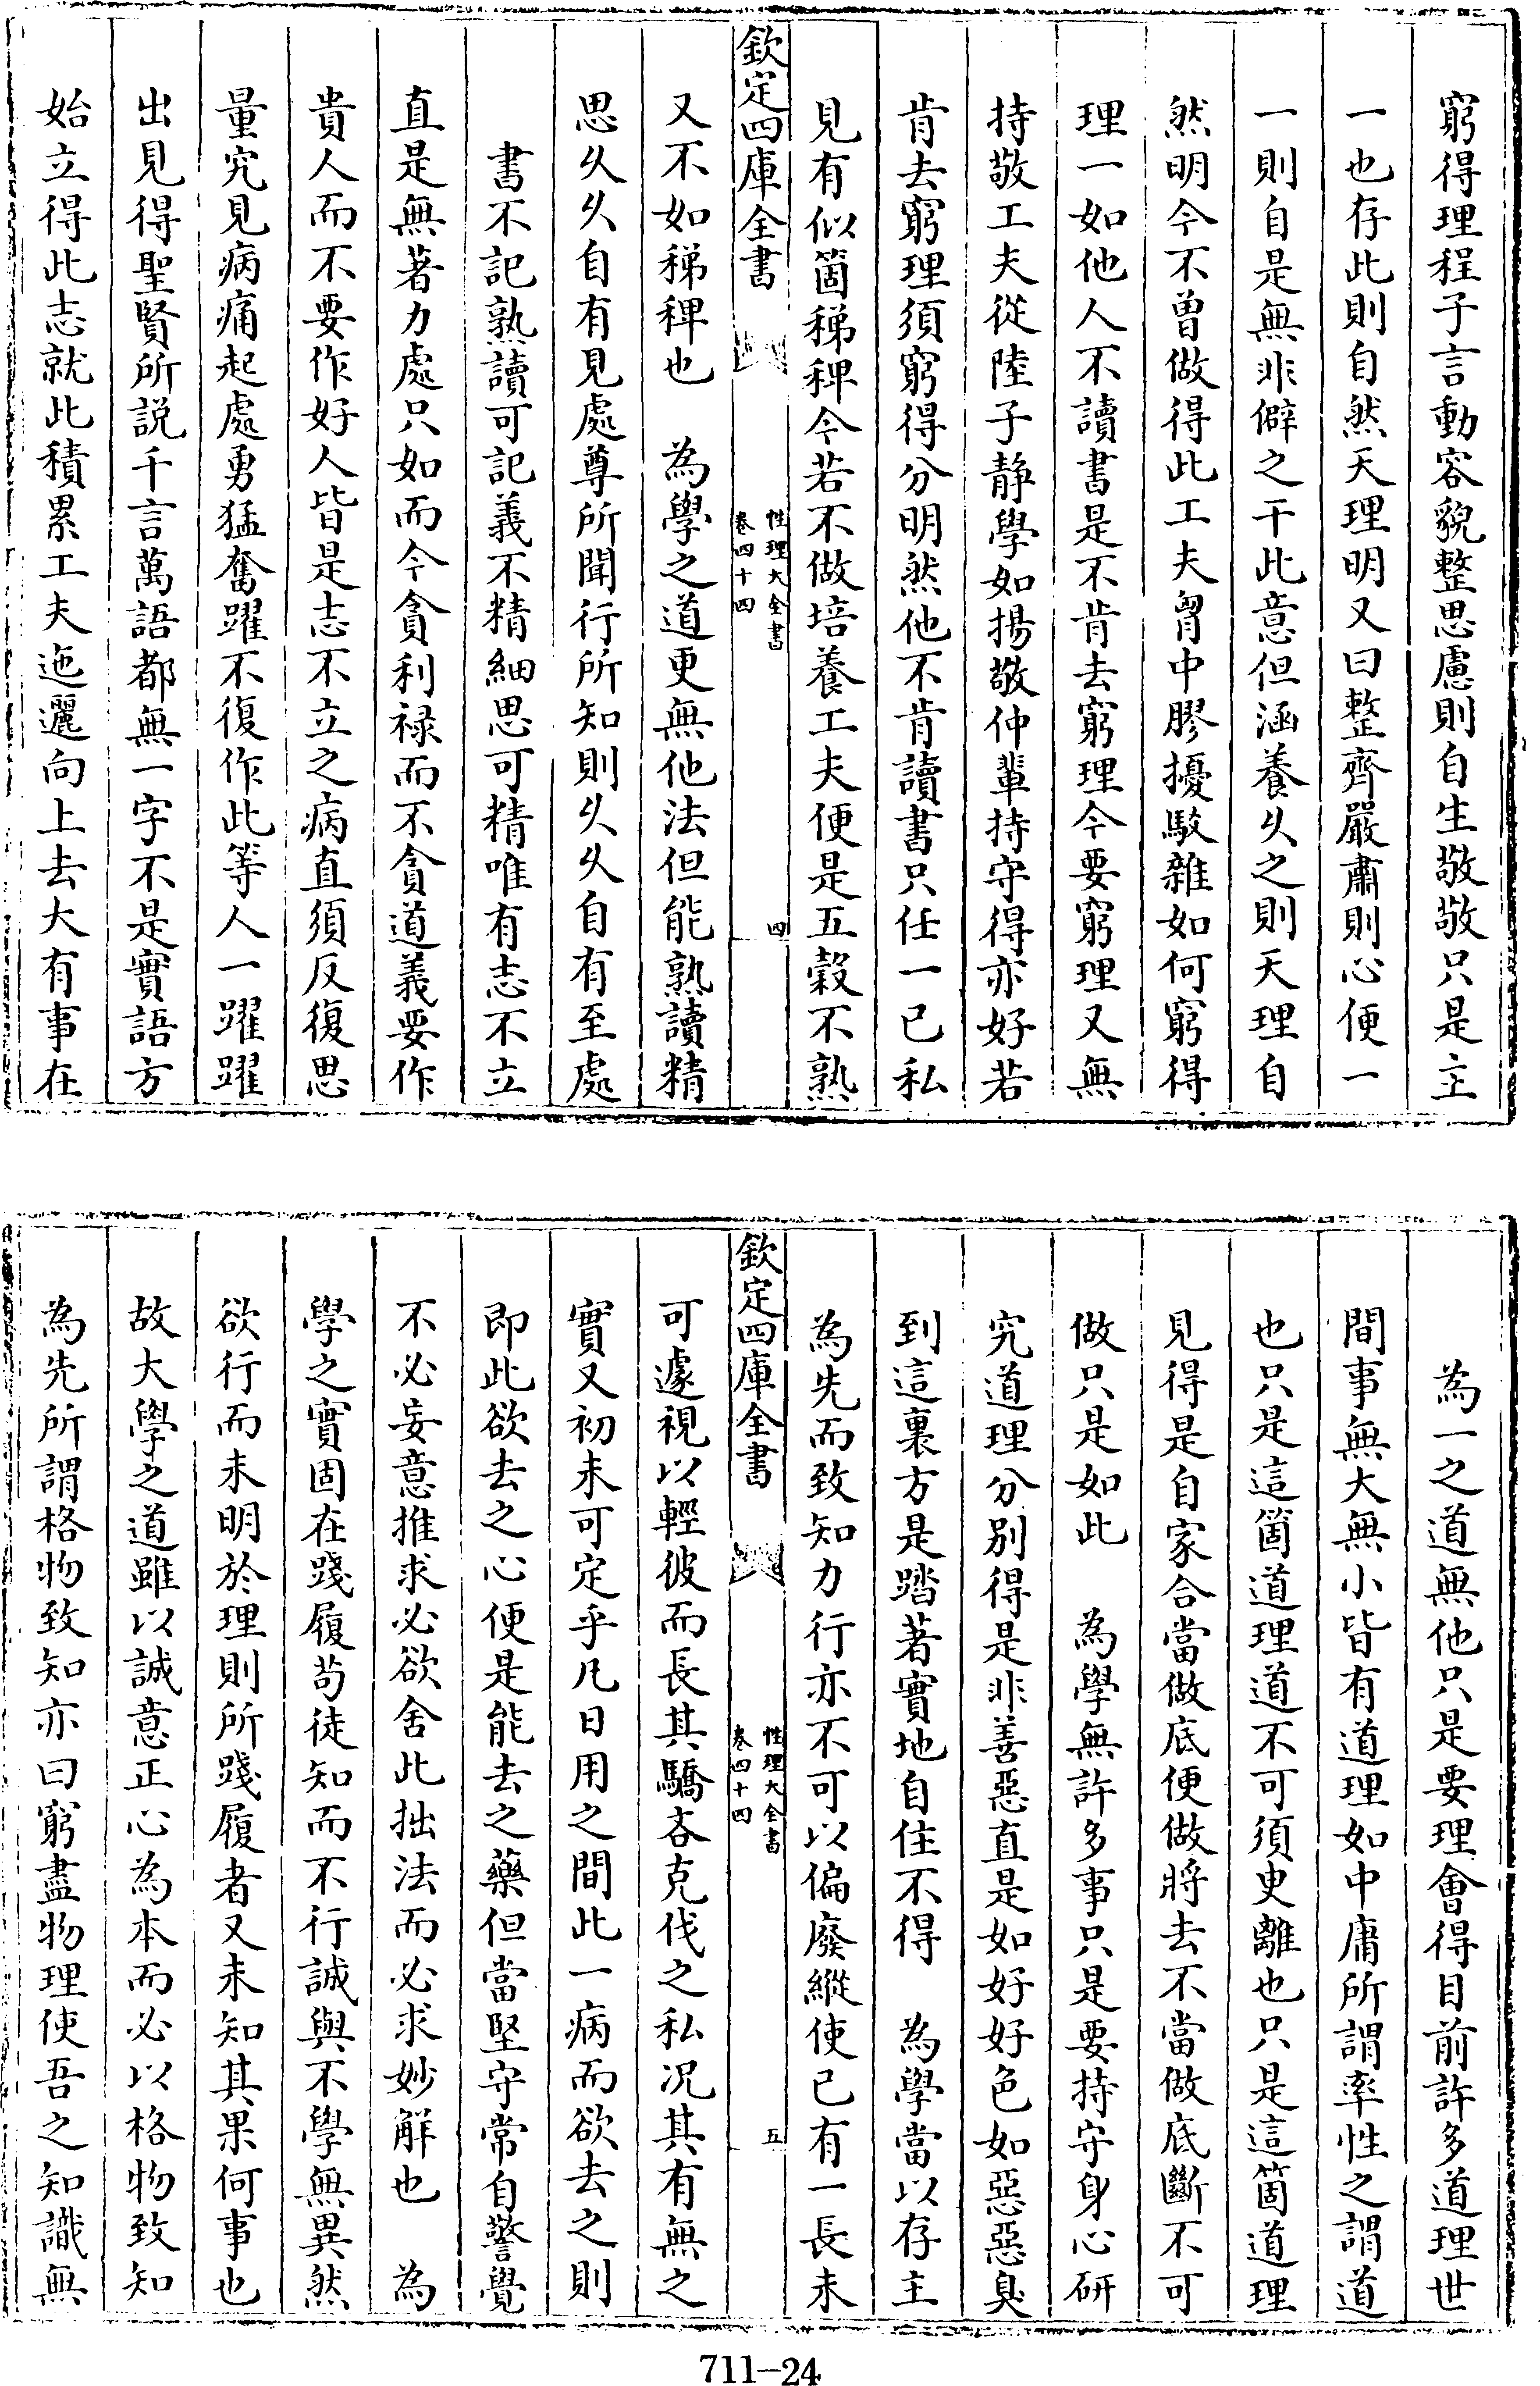 窮得理程子言動容貌整思慮則自生敬敬只是主
一也存此則自然天理明又曰整齊嚴肅則心便一
一則自是無非僻之干此意但涵養久之則天理自
然明今不曾做得此工夫胷中膠擾駁雜如何窮得
理一如他人不讀書是不肯去窮理今要窮理又無
持敬工夫從陸子靜學如揚敬仲輩持守得亦好若
肯去窮理須窮得分明然他不肯讀書只任一已私
見有似箇稊稗今若不做培養工夫便是五穀不熟
欽定四庫全書
性理大全書
卷四十四
四
又不如稊稗也 為學之道更無他法但能熟讀精
思久久自有見處尊所聞行所知則久久自有至處
書不記熟讀可記義不精細思可精唯有志不立
直是無著力處只如而今貪利禄而不貪道義要作
貴人而不要作好人皆是志不立之病直須反復思
量究見病痛起處勇猛奮躍不復作此等人一躍躍
出見得聖賢所説千言萬語都無一字不是實語方
始立得此志就此積累工夫迤邐向上去大有事在
為一之道無他只是要理會得目前許多道理世
間事無大無小皆有道理如中庸所謂率性之謂道
也只是這箇道理道不可須臾離也只是這箇道理
見得是自家合當做底便做將去不當做底斷不可
做只是如此 為學無許多事只是要持守身心研
究道理分別得是非善惡直是如好好色如惡惡臭
到這裏方是踏著實地自住不得 為學當以存主
為先而致知力行亦不可以偏廢縱使已有一長未
欽定四庫全書
性理大全書
卷四十四
五
可遽視以輕彼而長其驕吝克伐之私况其有無之
實又初未可定乎凡日用之間此一病而欲去之則
即此欲去之心便是能去之藥但當堅守常自警覺
不必妄意推求必欲舍此拙法而必求妙解也 為
學之實固在踐履茍徒知而不行誠與不學無異然
欲行而未明於理則所踐履者又未知其果何事也
故大學之道雖以誠意正心為本而必以格物致知
為先所謂格物致知亦曰窮盡物理使吾之知識無
711-24